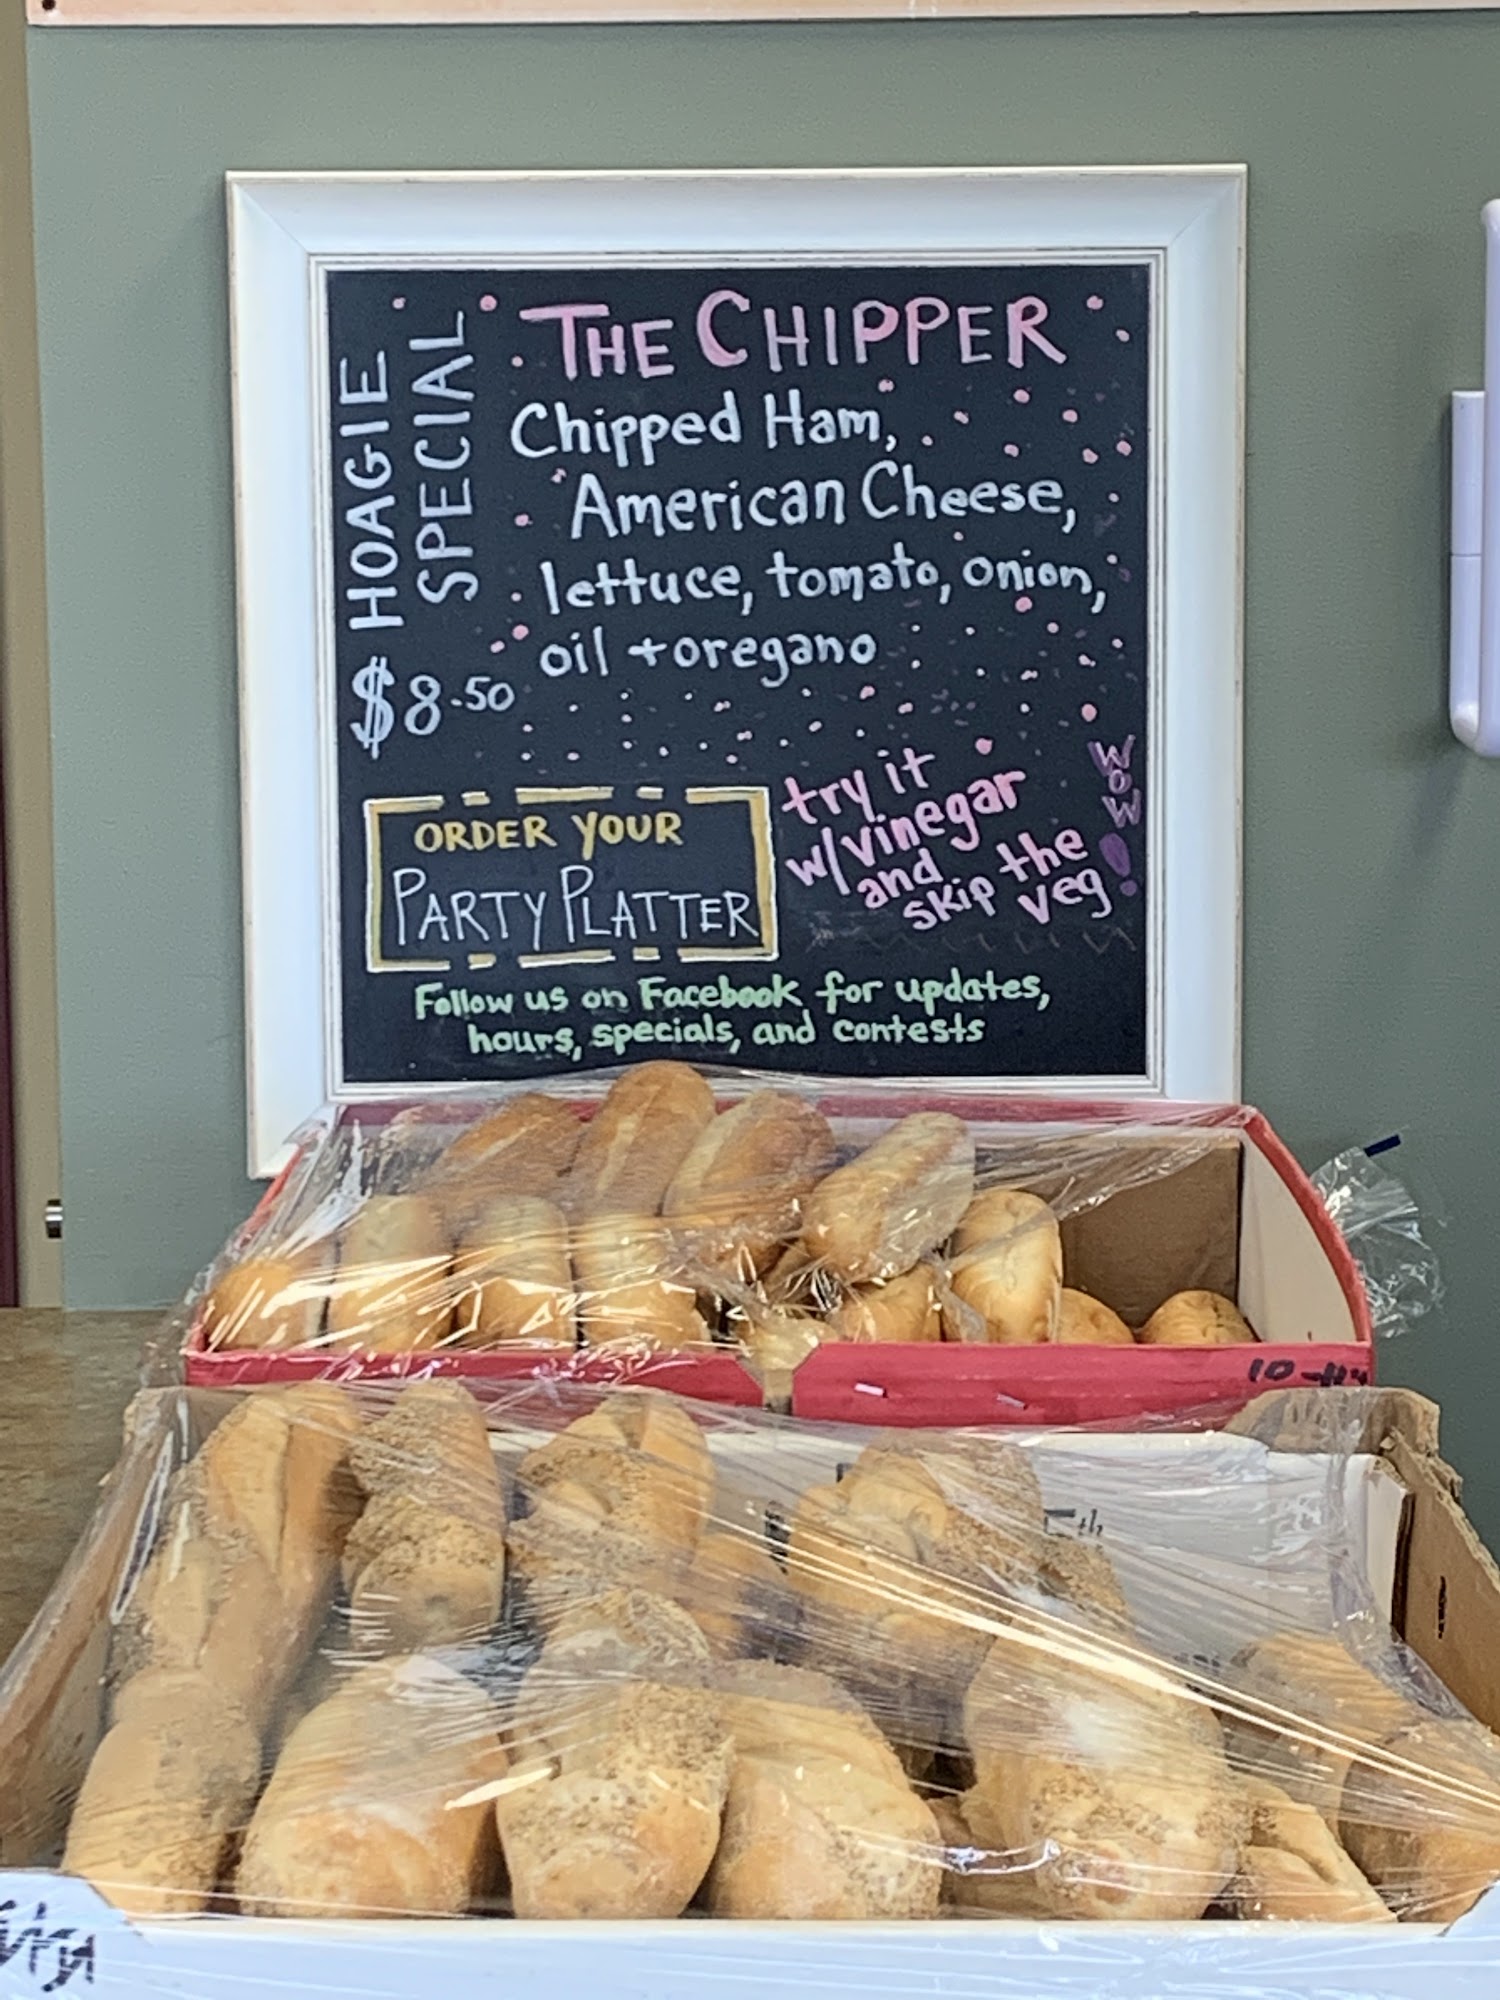 HOAGIE
SPECIAL
$8.50
THE CHIPPER
Chipped Ham,
American Cheese,
lettuce, tomato, onion,
oil + oregano
ORDER YOUR
PARTY PLATTER
try it
w/vinegar
and
skip the
veg
WOW!
Follow us on Facebook for updates,
hours, specials, and contests